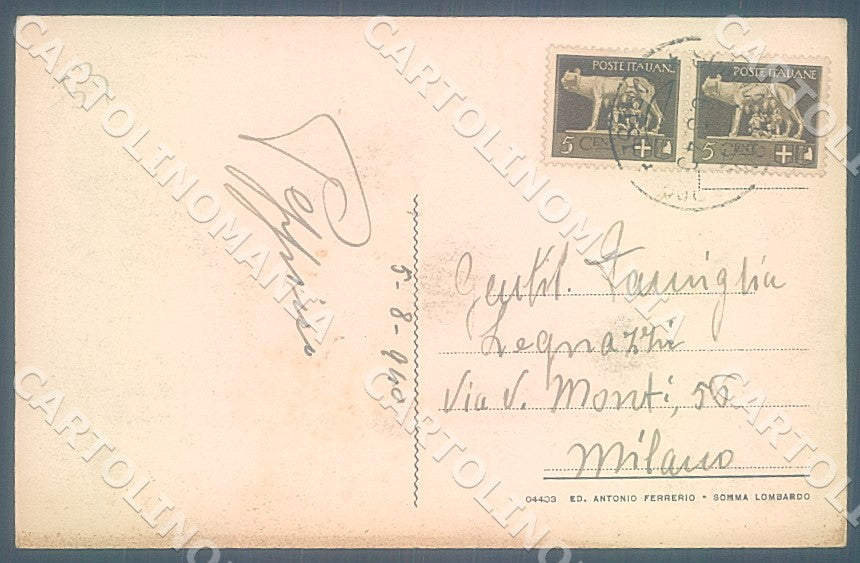 POSTE ITALIANE
5 CENT
POSTE ITALIANE
5 CENT
5-8-940
Gentil. Famiglia
Legnazzi
Via V. Monti, 56
Milano
04403 ED. ANTONIO FERRERIO • SOMMA LOMBARDO
CARTOLINOMANIA
CARTOLINOMANIA
CARTOLINOMANIA
CARTOLINOMANIA
CARTOLINOMANIA
CARTOLINOMANIA